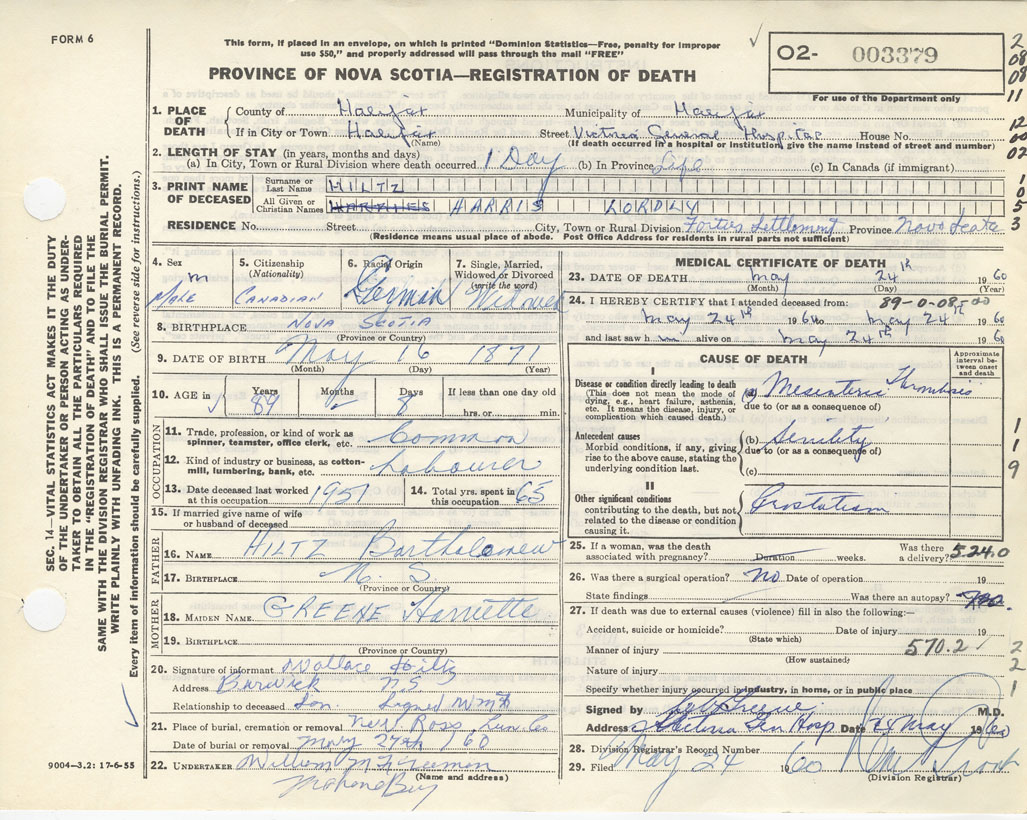 FORM 6
This form, if placed in an envelope, on which is printed "Dominion Statistics—Free, penalty for improper
use $50," and properly addressed will pass through the mail "FREE"
PROVINCE OF NOVA SCOTIA—REGISTRATION OF DEATH
02- 003379
For use of the Department only
2
08
08
11
12
00
02
1
0
5
3
1. PLACE OF DEATH
County of Halifax Municipality of Halifax
If in City or Town Halifax Street Victoria General Hospital House No.
(Name) (If death occurred in a hospital or institution, give the name instead of street and number)
2. LENGTH OF STAY (in years, months and days)
(a) In City, Town or Rural Division where death occurred 1 Day (b) In Province Life (c) In Canada (if immigrant)
3. PRINT NAME OF DECEASED
Surname or Last Name HILTZ
All Given or Christian Names HARRIS LORDLY
RESIDENCE No. Street City, Town or Rural Division Forties Settlement Province Nova Scotia
(Residence means usual place of abode. Post Office Address for residents in rural parts not sufficient)
4. Sex
m
Male
5. Citizenship
(Nationality)
Canadian
6. Racial Origin
German
7. Single, Married,
Widowed or Divorced
(write the word)
Widowed
8. BIRTHPLACE Nova Scotia
(Province or Country)
9. DATE OF BIRTH May 16 1871
(Month) (Day) (Year)
10. AGE in Years 89 Months Days 8 If less than one day
hrs. or min.
OCCUPATION
11. Trade, profession, or kind of work as
spinner, teamster, office clerk, etc. Common
12. Kind of industry or business, as cotton-
mill, lumbering, bank, etc. Labourer
13. Date deceased last worked
at this occupation 1951
14. Total yrs. spent in
this occupation 65
15. If married give name of wife
or husband of deceased
FATHER
16. NAME HILTZ Bartholomew
17. BIRTHPLACE N. S.
(Province or Country)
MOTHER
18. MAIDEN NAME GREENE Harriette
19. BIRTHPLACE
(Province or Country)
20. Signature of informant Wallace Hiltz
Address Barwick N S
Relationship to deceased Son. Signed
21. Place of burial, cremation or removal New Ross Lun. Co
Date of burial or removal May 27th /60
22. UNDERTAKER William M Freeman
(Name and address)
Mahone Bay
9004-3.2: 17-6-55
SEC. 14—VITAL STATISTICS ACT MAKES IT THE DUTY
OF THE UNDERTAKER OR PERSON ACTING AS UNDER-
TAKER TO OBTAIN ALL THE PARTICULARS REQUIRED
IN THE "REGISTRATION OF DEATH" AND TO FILE THE
SAME WITH THE DIVISION REGISTRAR WHO SHALL ISSUE THE BURIAL PERMIT.
WRITE PLAINLY WITH UNFADING INK. THIS IS A PERMANENT RECORD.
Every item of information should be carefully supplied. (See reverse side for instructions.)
MEDICAL CERTIFICATE OF DEATH
23. DATE OF DEATH May 24th 1960
(Month) (Day) (Year)
24. I HEREBY CERTIFY that I attended deceased from: 89-0-08
May 24th 1960 to May 24th 1960
and last saw him alive on May 24th 1960
CAUSE OF DEATH
Approximate
interval be-
tween onset
and death
I
Disease or condition directly leading to death
(This does not mean the mode of
dying, e.g., heart failure, asthenia,
etc. It means the disease, injury, or
complication which caused death.)
(a) Mesenteric Thrombosis
due to (or as a consequence of)
Antecedent causes
Morbid conditions, if any, giving
rise to the above cause, stating the
underlying condition last.
(b) Senility
due to (or as a consequence of)
(c)
II
Other significant conditions
contributing to the death, but not
related to the disease or condition
causing it.
Prostatism
1
1
9
25. If a woman, was the death
associated with pregnancy? Duration weeks. Was there
a delivery? 5.24.0
26. Was there a surgical operation? No Date of operation 19
State findings Was there an autopsy?
27. If death was due to external causes (violence) fill in also the following:—
Accident, suicide or homicide? Date of injury 19
(State which)
Manner of injury 570.2
(How sustained)
Nature of injury
Specify whether injury occurred in industry, in home, or in public place
2
2
1
Signed by M.D.
Address Victoria Gen Hosp Date 24 May 1960
28. Division Registrar's Record Number
29. Filed May 24 1960
(Division Registrar)